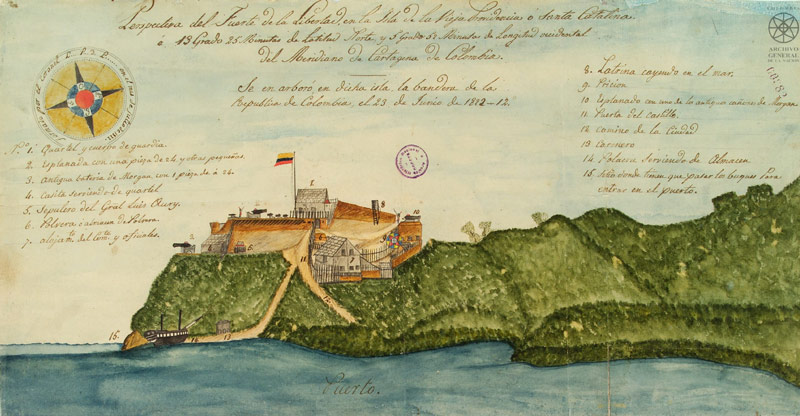 Perspectiva del Fuerte de la Libertad, en la Isla de la Vieja Providencia ó Santa Catalina
á 13 Grado 25 Minutos de Latitud Norte, y 5 Grado 53 Minutos de Longitud occidental
del Meridiano de Cartagena de Colombia.
Se en arboro en dicha isla la bandera de la
Republica de Colombia, el 23 de Junio de 1822-12.
Nos 1. Quartel y cuerpo de guardia.
2. Esplanada con una pieza de 24 y otras pequeñas.
3. Antigua bateria de Morgan con 1 pieza de á 24.
4. Casita serviendo de quartel
5. Sepulcro del Gral Luis Aury.
6. Polvera
7. alojamto. del Comte. y oficiales.
8. Latrina cayendo en el mar.
9. Pricion
10. Esplanado con uno de lo antiguo cañones de Morgan
11. Puerta del castillo.
12. camino de la Ciudad
13. Carenero
14. Polacca serviendo de Almacen.
15. Sitio donde tienen que pasar lo buques para
entrar en el puerto.
ARCHIVO
GENERAL
DE LA NACION
1
2
5
7
8
10
11
12
13
14
15.
Puerto.